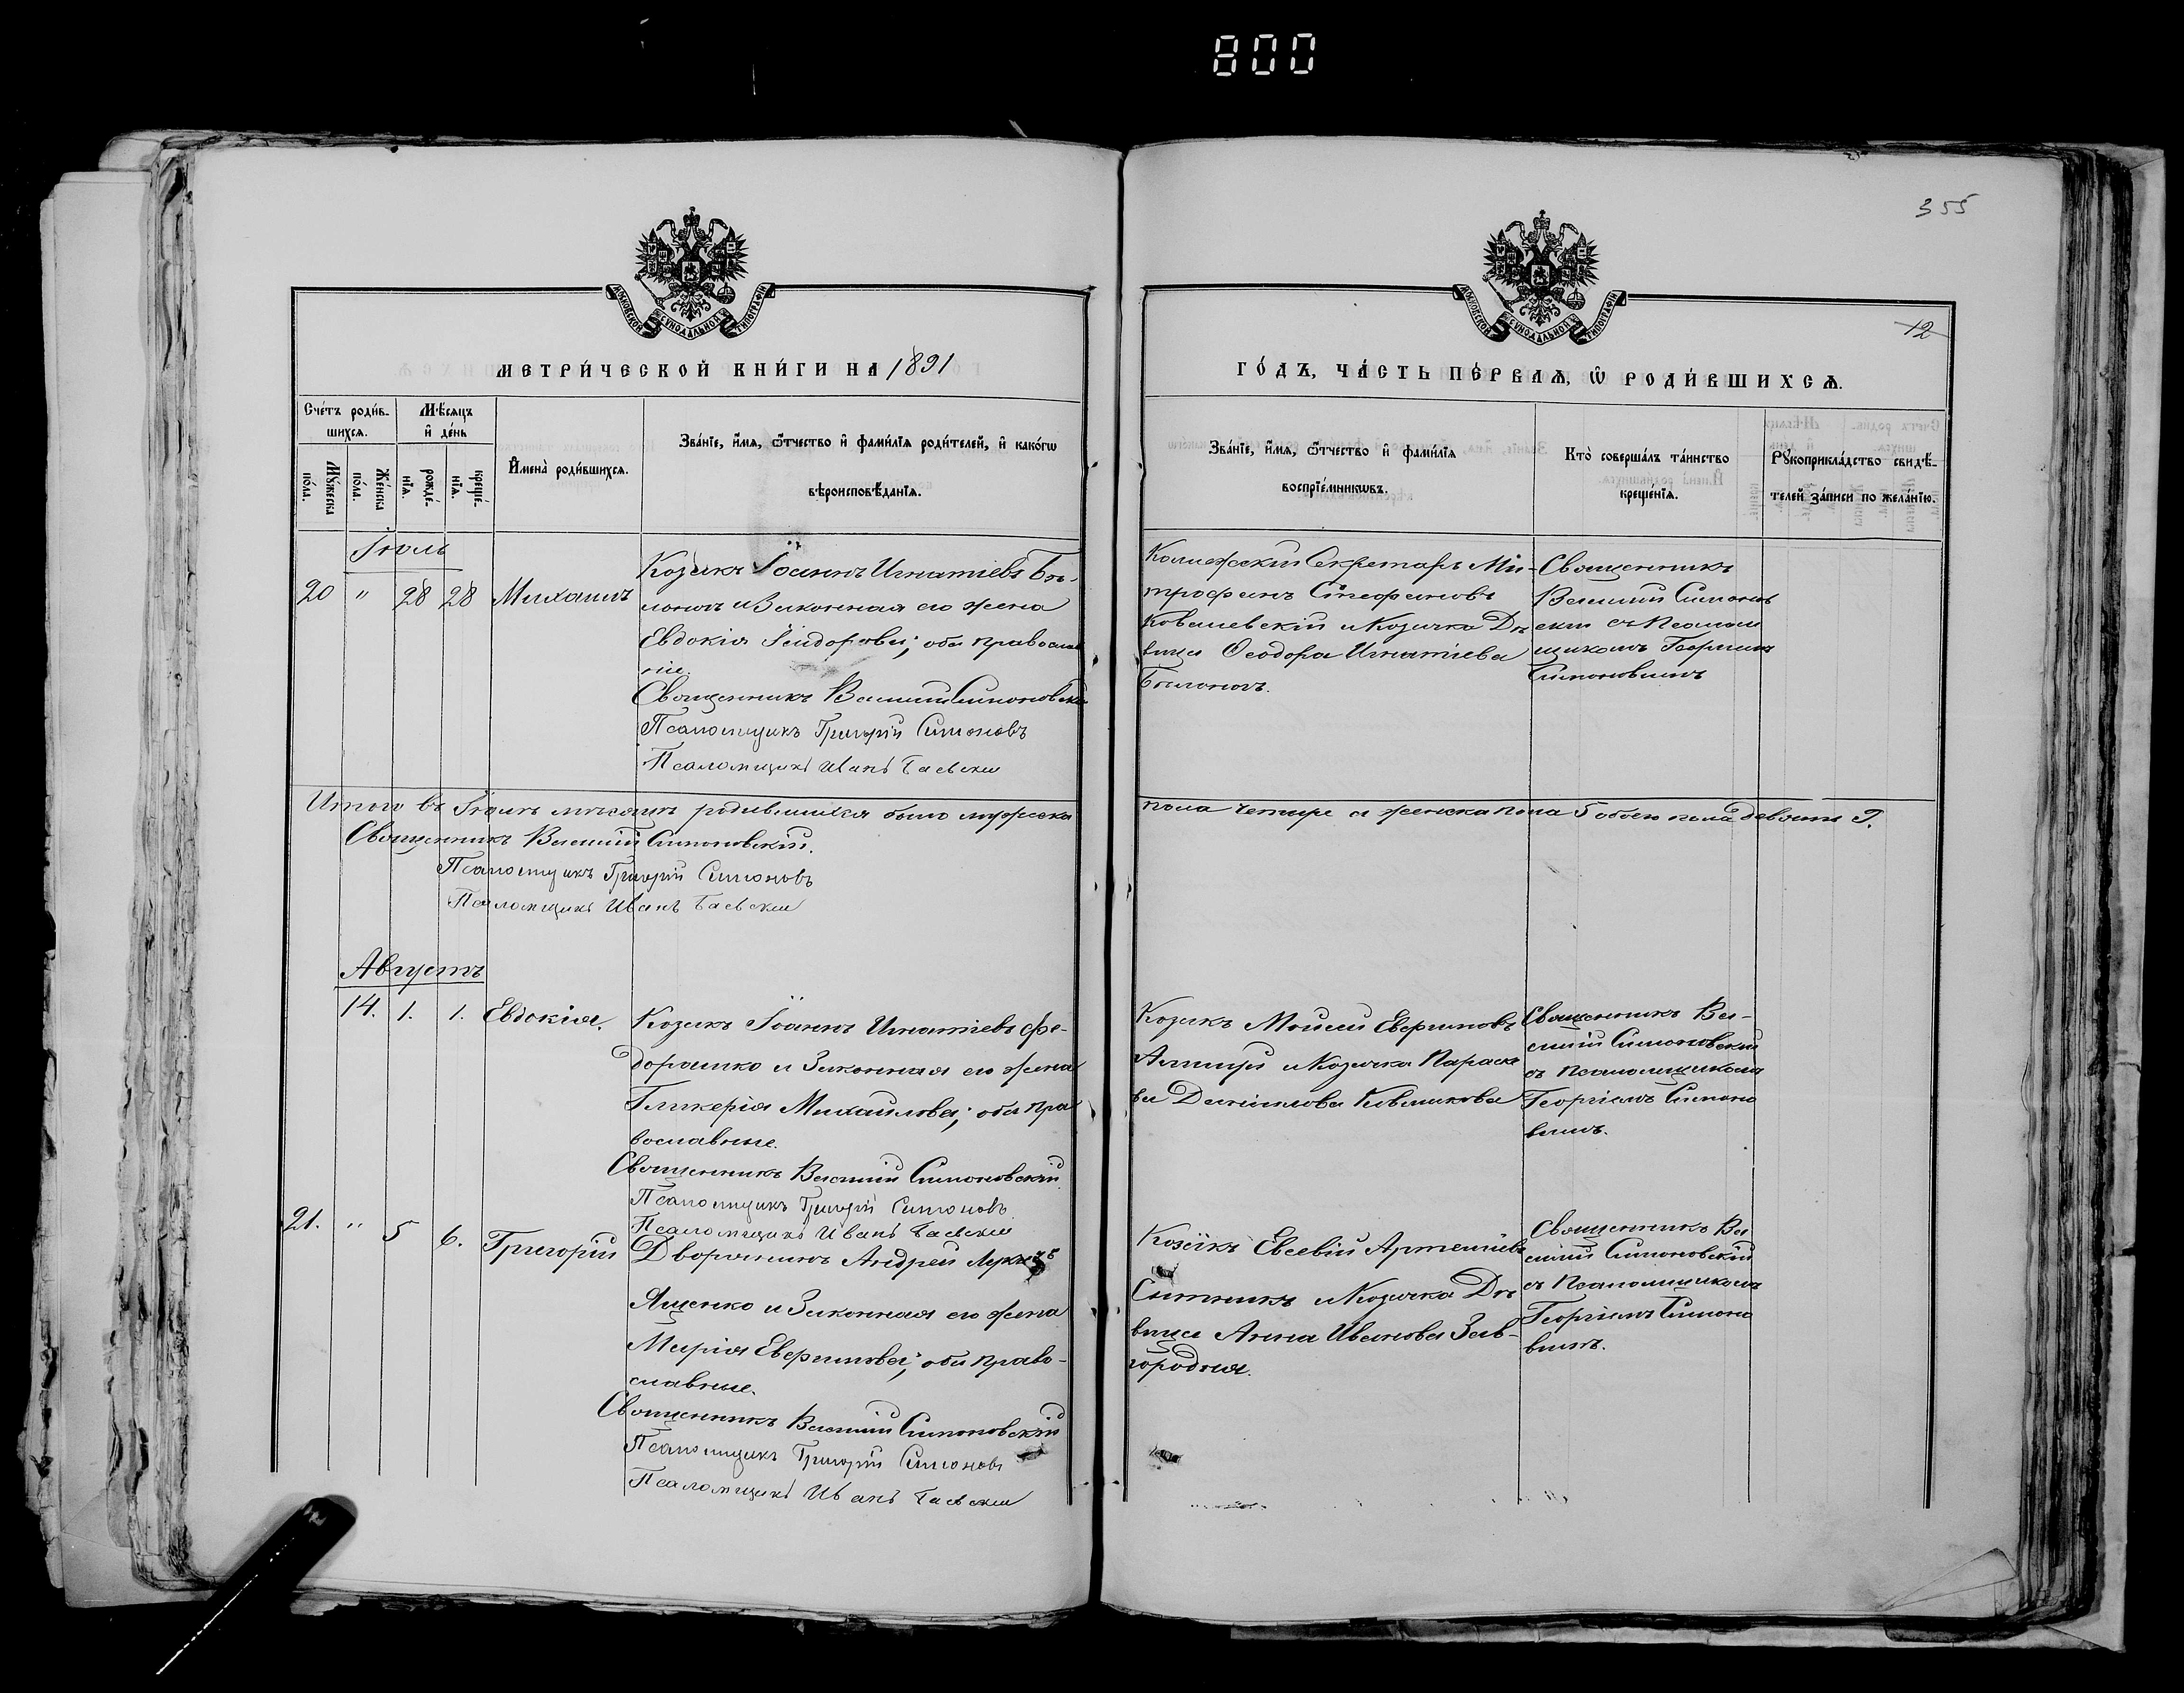 800
355
12
МОСКОВСКОЙ СѴНОДАЛЬНОЙ ТИПОГРАФІИ
МОСКОВСКОЙ СѴНОДАЛЬНОЙ ТИПОГРАФІИ
МЕТРИ́ЧЕСКОЙ КНИ́ГИ НА 1891
ГО́ДЪ, ЧА́СТЬ ПЕ́РВАѦ, Ѿ РОДИ́ВШИХСѦ.
Сче́тъ роди́в-
шихся.
Мѣ́сяцъ
и҆ де́нь
Мꙋ́жеска
по́ла.
Же́нска
по́ла.
рожде́-
нїѧ.
креще́-
нїѧ.
И҆мена̀ роди́вшихся.
Зва́нїе, и҆́мѧ, ѻ҆́тчество и҆ фами́лїѧ роди́телей, и҆ како́гѡ
вѣроисповѣ́данїѧ.
Зва́нїе, и҆́мѧ, ѻ҆́тчество и҆ фами́лїѧ
воспрїе́мникѡвъ.
Кто̀ соверша́лъ та́инство
креще́нїѧ.
Рꙋкоприкла́дство свидѣ́-
телей за́писи по жела́нїю.
Іюль
20 " 28 28 Михаилъ
Козакъ Іоаннъ Игнатіевъ Бѣ-
лоногъ и Законная его жена
Евдокія Ісидорова; оба православ
ные.
Священникъ Василій Симоновскій
Псаломщикъ Григорій Симоновъ
Псаломщикъ Иванъ Баевскій
Коллежскій Секретарь Ми-
трофанъ Стефановъ
Ковалевскій и Козачка Дѣ
вица Ѳеодора Игнатіева
Бѣлоногъ.
Священникъ
Василій Симоновъ
скій съ Псалом
щикомъ Георгіемъ
Симоновымъ
Итого въ Іюлѣ мѣсяцѣ родившихся было мужеска
пола четыре а женска пола 5 обоего пола девять 9.
Священникъ Василій Симоновскій.
Псаломщикъ Григорій Симоновъ
Псаломщикъ Иванъ Баевскій
Августъ
14. 1. 1. Евдокія.
Козакъ Іоаннъ Игнатіевъ Фе-
дорашко и Законная его жена
Гликерія Михайлова; оба пра
вославные.
Священникъ Василій Симоновскій
Псаломщикъ Григорій Симоновъ
Псаломщикъ Иванъ Баевскій
Козакъ Моисей Евфимовъ
и Козачка Параске
ва Даніилова
Священникъ Ва-
силій Симоновскій
съ Псаломщикомъ
Георгіемъ Симоно
вымъ.
21. " 5 6. Григорій
Дворянинъ Андрей
Ященко и Законная его жена
Марія Евфимова; оба право-
славные.
Священникъ Василій Симоновскій
Псаломщикъ Григорій Симоновъ
Псаломщикъ Иванъ Баевскій
Козакъ Евсевій Артеміевъ
Сытникъ и Козачка Дѣ
вица Анна Иванова Зав-
городняя.
Священникъ Ва
силій Симоновскій
съ Псаломщикомъ
Георгіемъ Симоно
вымъ.